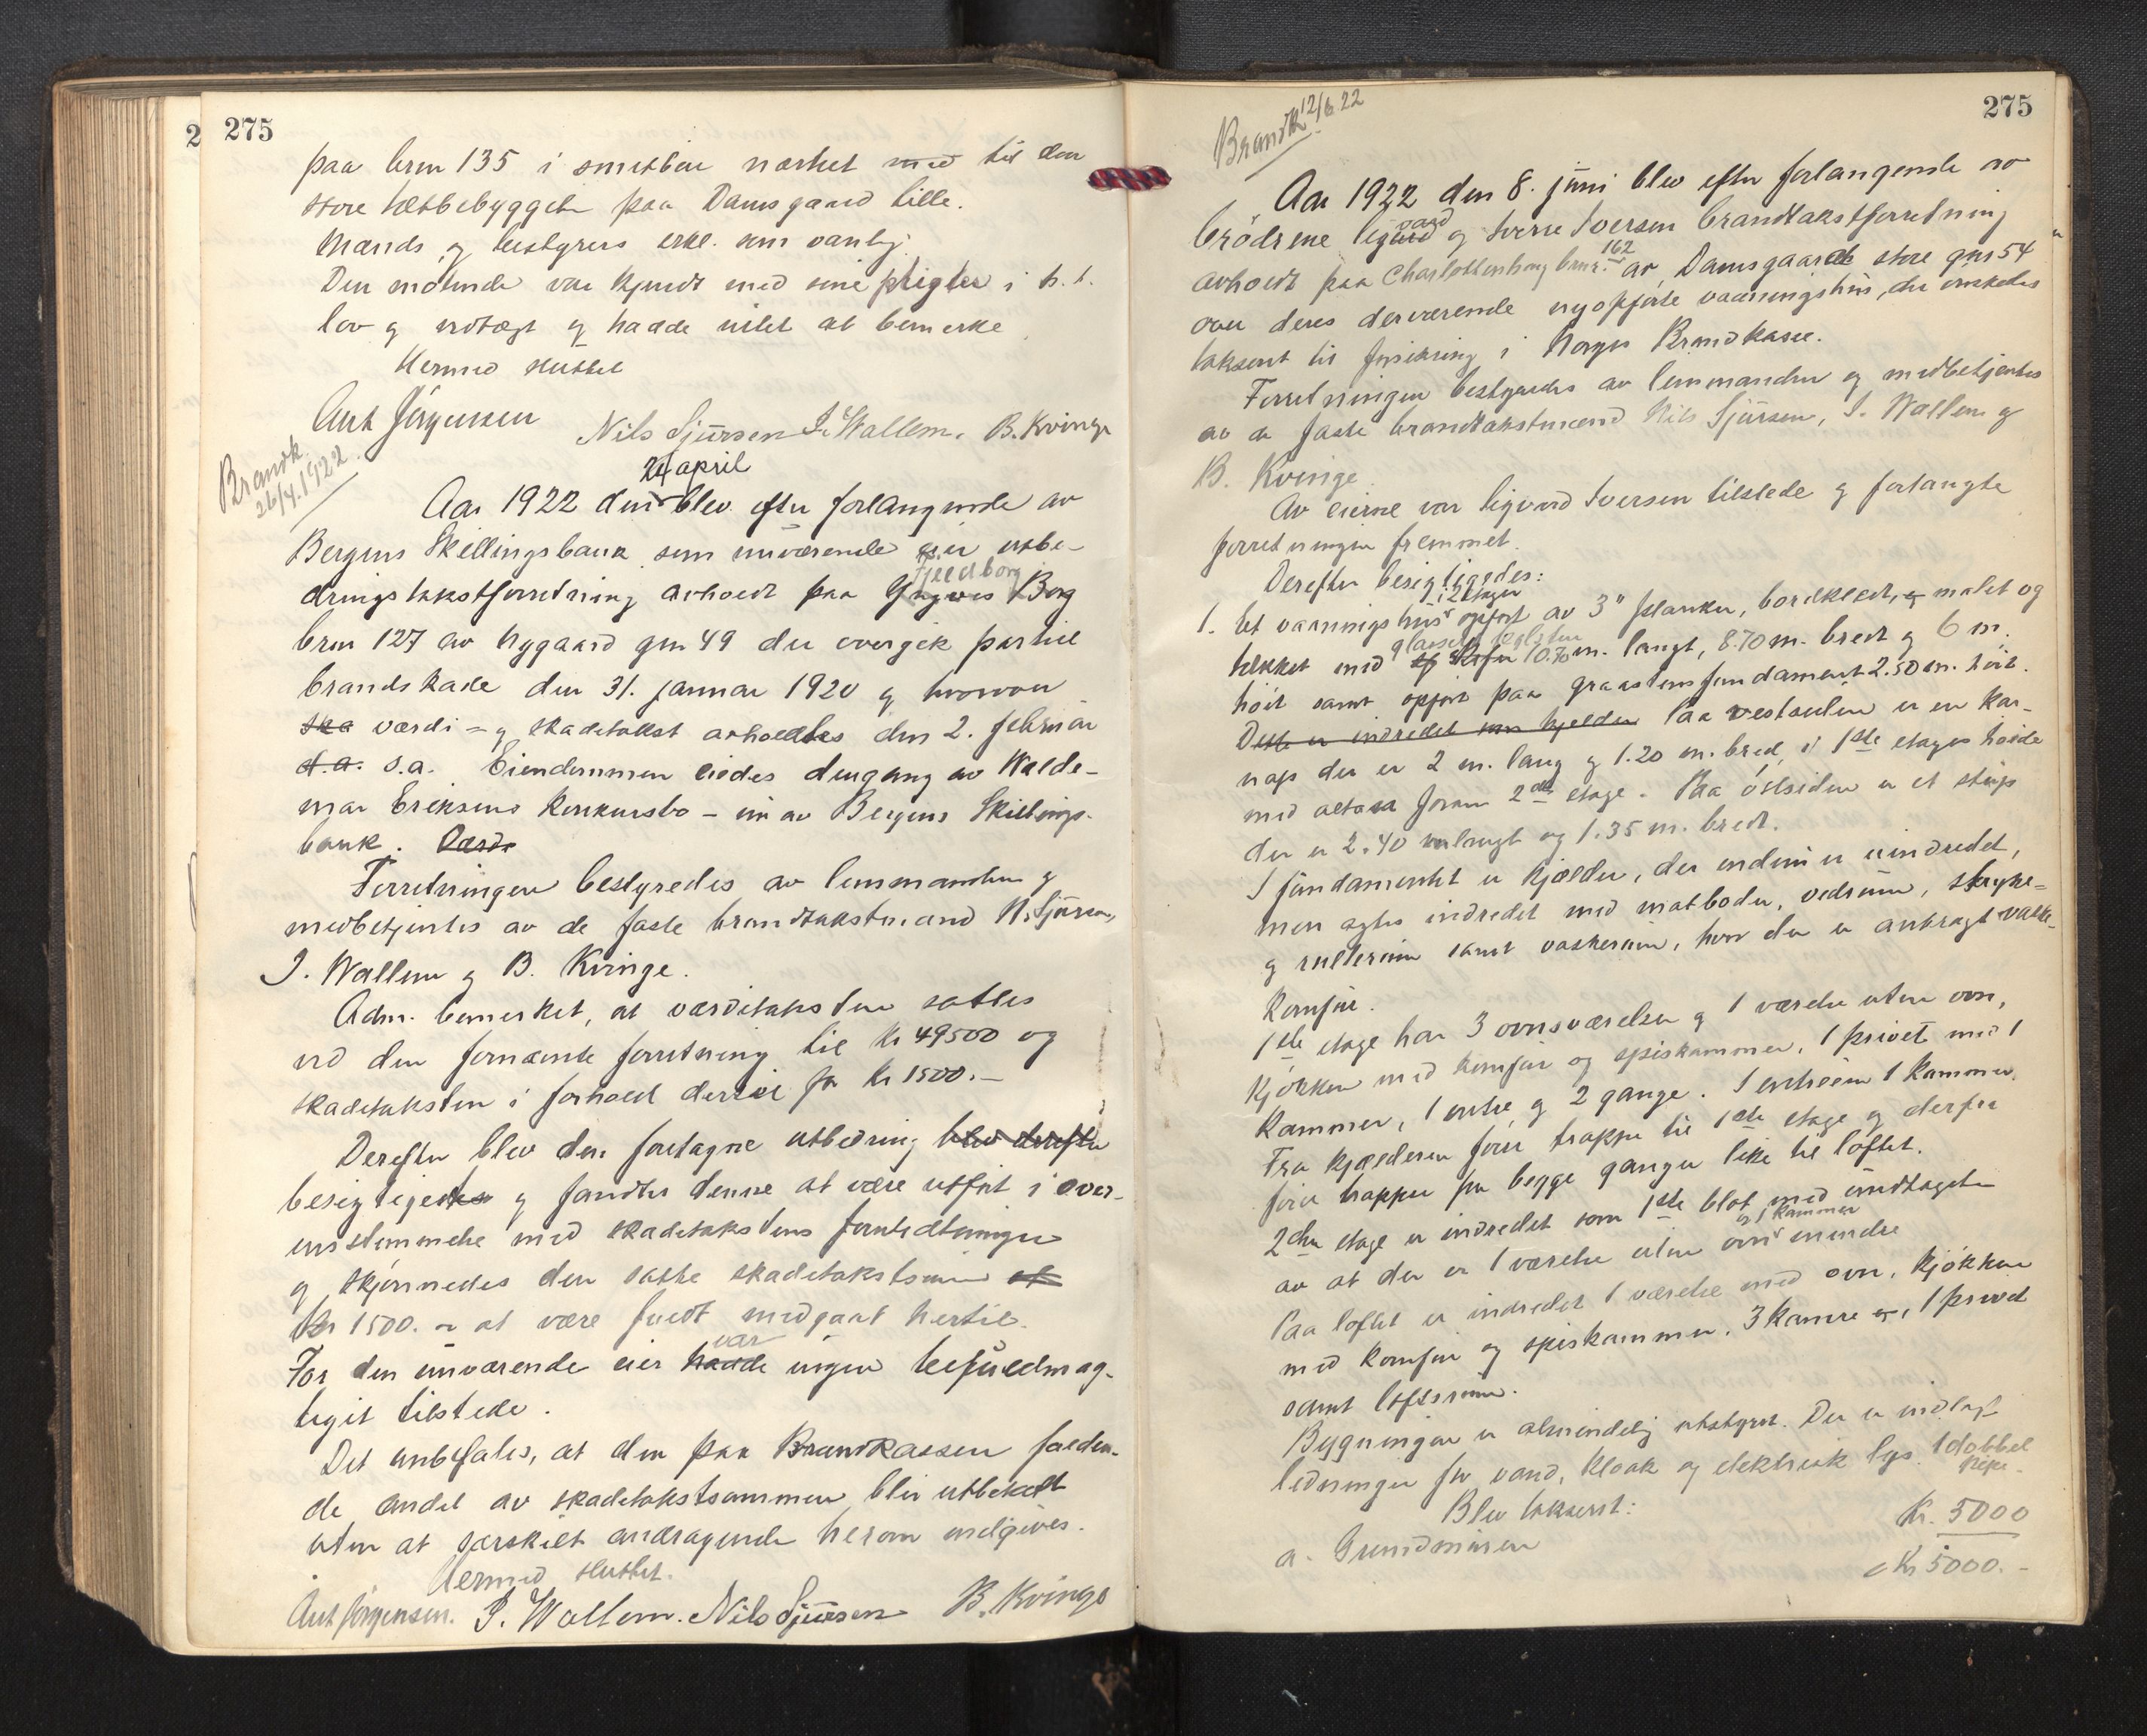 275
paa brnr 135 i smithbien nærhet med til den
store tætbebyggelse paa Damsgaard lille.
Mænds og bestyrers erkl. som vanlig.
Den mötende var kjendt med sine pligter i h. t.
lov og vedtægt og hadde intet at bemerke
Hermed sluttet
Ant Jörgensen Nils Sjursen I. Wallem. B. Kvinge
Brandk. 26/4. 1922.
24 april
Aar 1922 den blev efter forlangende av
Bergens Skillingsbank som nuværende eier utbe-
Fjeldborg
dringstakstforretning avholdt paa Yngves Borg
brnr 127 av Nygaard gnr 49 der overgik partiel
brandskade den 31. januar 1920 og hvorover
ska værdi = og skadetakst avholdtes den 2. februar
d.a. s.a. Eiendommen eiedes dengang av Walde-
mar Eriksens konkursbo – nu av Bergens Skillings-
bank. Værdi
Forretningen bestyredes av lensmanden og
medbetjentes av de faste brandtakstmænd N. Sjursen,
I. Wallem og B. Kvinge.
Adm. bemerket, at værditaksten sattes
ved den fornævnte forretning til kr 49500 og
skadetaksten i forhold dertil for kr 1500.–
Derefter blev den foretagne utbedring blev derefter
besigtigedes og fandtes denne at være utført i over-
ensstemmelse med skadetakstens forutsetninger
og skjønnedes den satte skadetakstsum at
kr 1500.– at være fuldt medgaat hertil.
var
For den nuværende eier hadde ingen befuldmæg-
tiget tilstede.
Det anbefales, at den paa Brandkassen falden-
de andel av skadetakstsummen blir utbetalt
uten at særskilt andragende herom indgives.
Hermed sluttet.
Ant Jörgensen. I. Wallem. Nils Sjursen B. Kvinge
275
Brandk. 12/6. 22
Aar 1922 den 8. juni blev efter forlangende av
vard
brödrene Sigurd og Sverre Iversen brandtakstforretning
162
avholdt paa Charlottenborg brnr. av Damsgaard store gnr 54
over deres derværende nyopførte vaaningshus, der ønskedes
taksert til forsikring i Norges Brandkasse.
Forretningen bestyredes av lensmanden og medbetjentes
av de faste brandtakstmænd Nils Sjursen, I. Wallem og
B. Kvinge.
Av eierne var Sigvard Iversen tilstede og forlangte
forretningen fremmet.
Derefter besigtigedes:
i 2 etager
1. Et vaaningshus opfört av 3" planker, bordklædt, og malet og
glasert teglsten
tækket med og skifer 10.70 m. langt, 8.70 m. bredt og 6 m.
höit samt opfört paa graastensfundament 2.50 m. höit.
Dette er indredet som kjelder Paa vestsiden er en kar-
nap der er 2 m. lang og 1.20 m. bred, i 1ste etages höide
med altan foran 2den etage. Paa östsiden er et utbygg
der er 2.40 m langt og 1.35 m. bredt.
I fundamentet er kjælder, der endnu er uindredet,
men agtes indredet med matboder, vedrum, stryke-
og rullerum samt vaskerum, hvor der er anbragt vaske-
komfur.
1ste etage har 3 ovnsværelser og 1 værelse uten ovn,
kjökken med komfur og spiskammer, 1 privet med 1
kammer, 1 entre og 2 gange. I entreen 1 kammer.
Fra kjælderen förer trappe til 1ste etage og derfra
förer trapper fra begge ganger like til loftet.
2den etage er indredet som 1ste blot med undtagelse
og 1 kammer
av at der er 1 værelse uten ovn mindre
Paa loftet er indredet 1 værelse med ovn, kjökken
med komfur og spiskammer, 3 kamre og, 1 privet
samt loftsrum.
Bygningen er almindelig utstyret. Der er indlagt
ledninger for vand, kloak og elektrisk lys. 1 dobbel
pipe.
Blev taksert:
a. Grundmuren Kr. 5000
Kr 5000.–